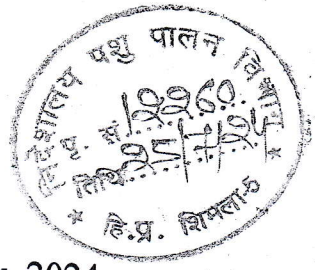 निदेशालय पशु पालन विभाग
पृ. सं. 12260
तिथि 25/7/24
* हि.प्र. शिमला-5 *
2024